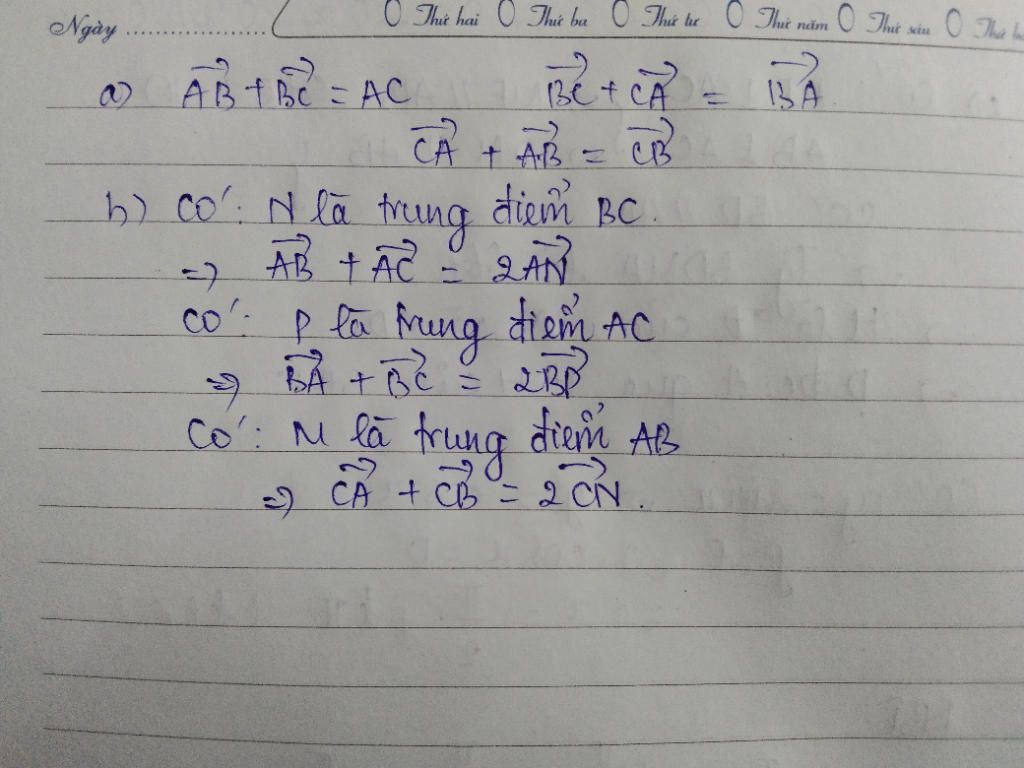 Ngày .................... Thứ hai Thứ ba Thứ tư Thứ năm Thứ sáu Thứ
a) $\overrightarrow{AB} + \overrightarrow{BC} = AC$ $\overrightarrow{BC} + \overrightarrow{CA} = \overrightarrow{BA}$
$\overrightarrow{CA} + \overrightarrow{AB} = \overrightarrow{CB}$
b) Có: N là trung điểm BC.
=> $\overrightarrow{AB} + \overrightarrow{AC} = 2\overrightarrow{AN}$
Có: P là trung điểm AC
=> $\overrightarrow{BA} + \overrightarrow{BC} = 2\overrightarrow{BP}$
Có: N là trung điểm AB
=> $\overrightarrow{CA} + \overrightarrow{CB} = 2\overrightarrow{CN}$.